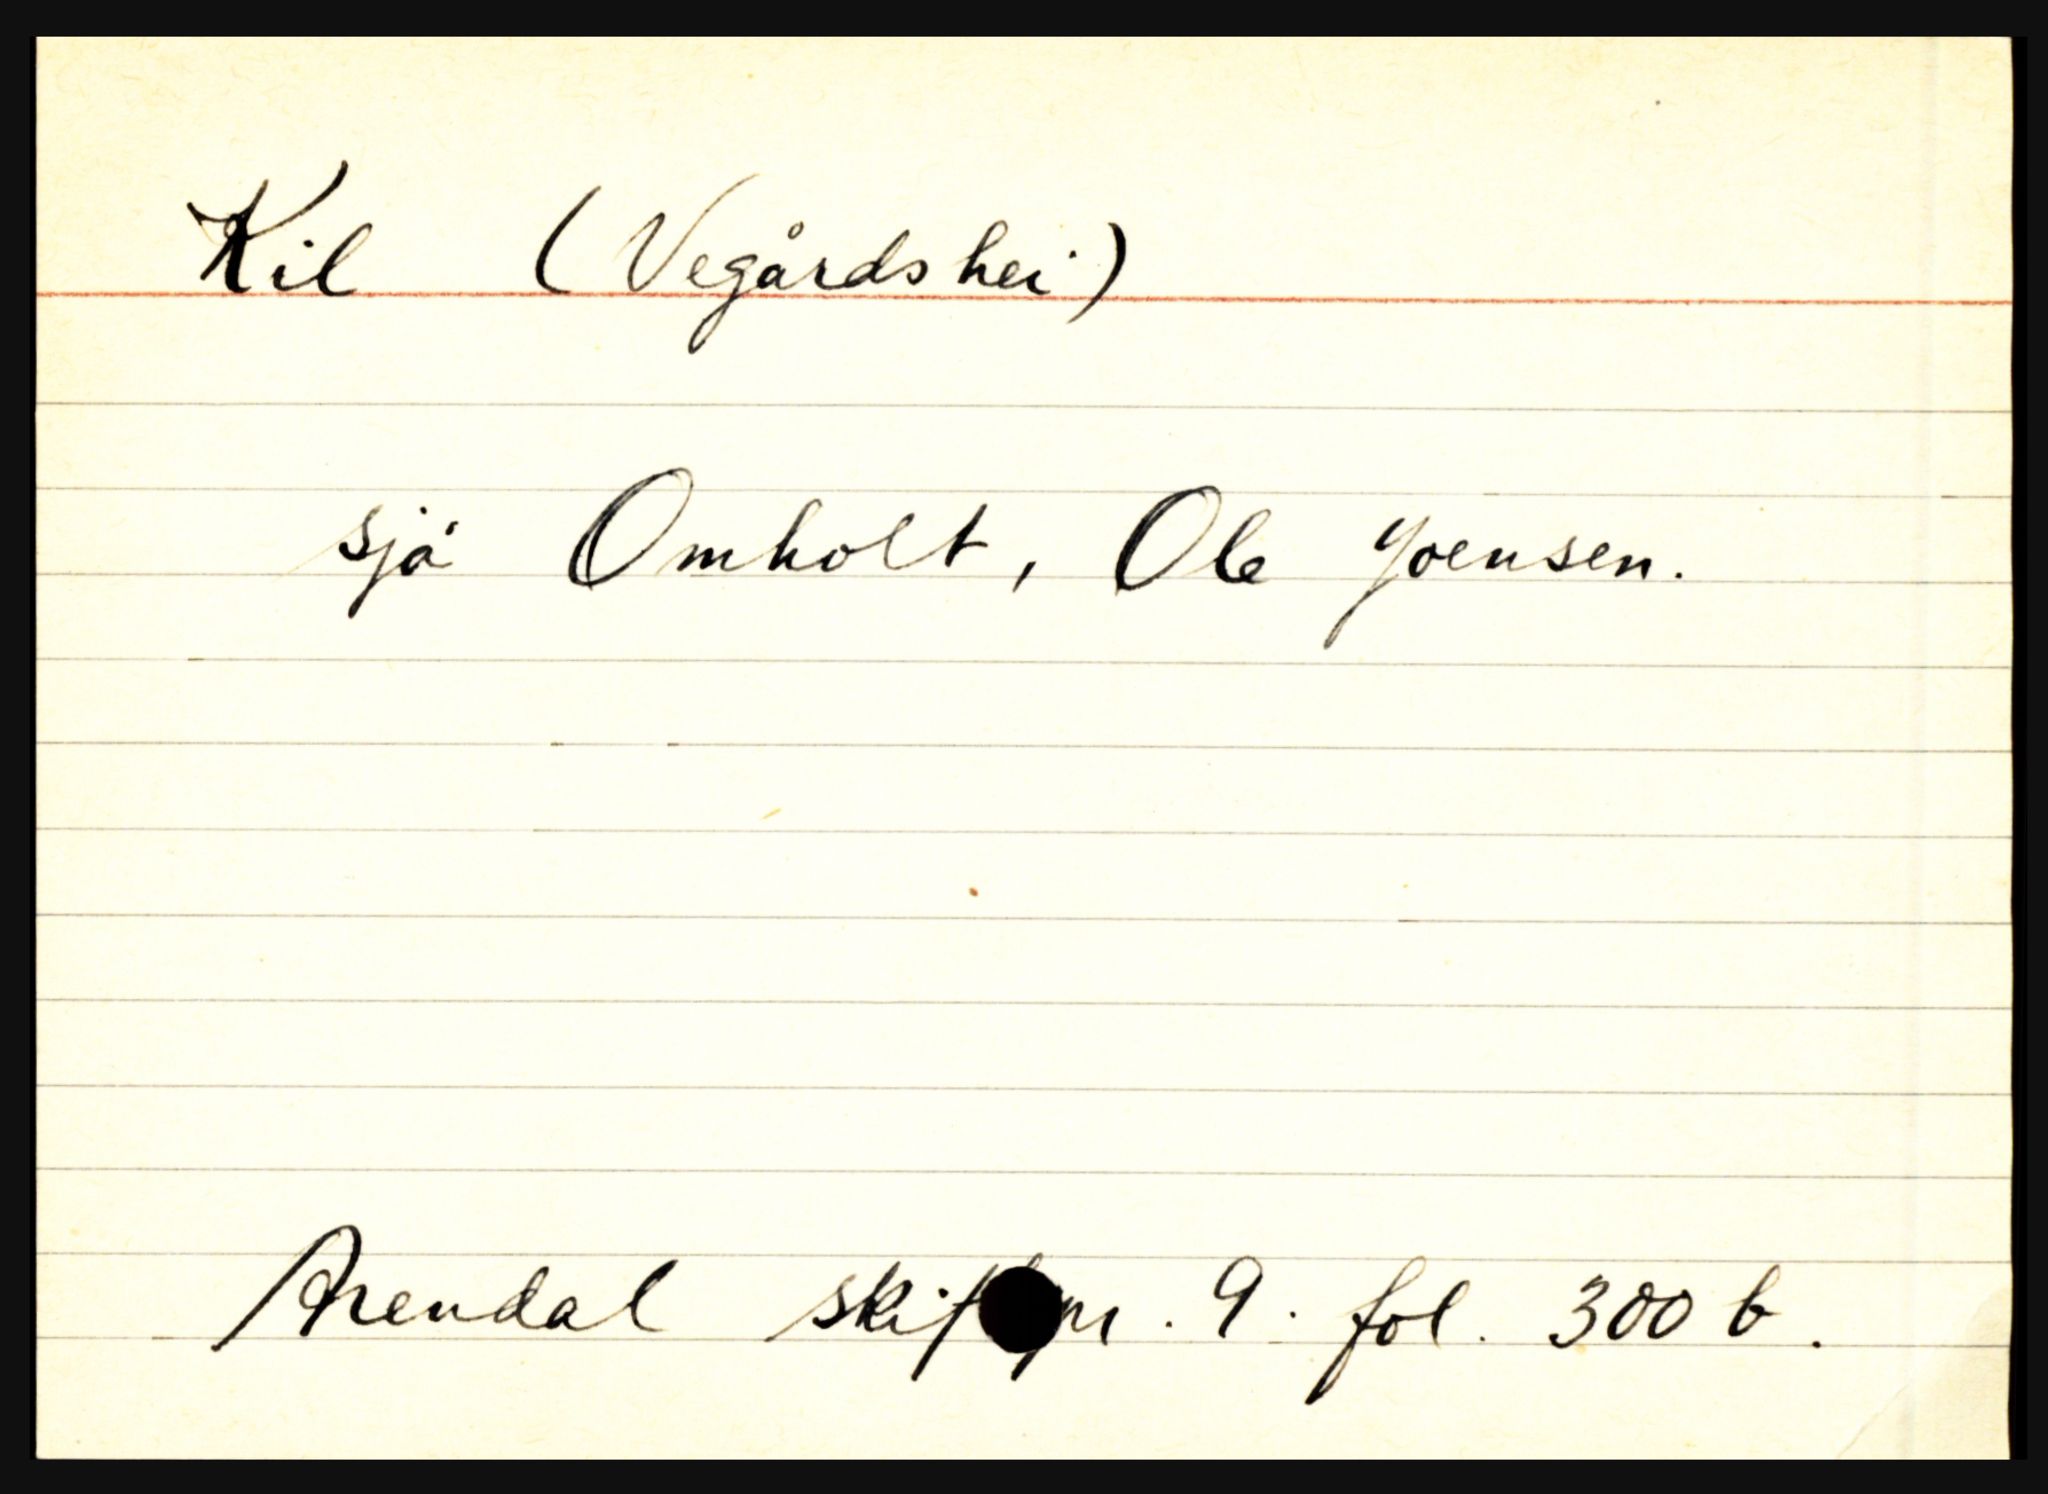 Kil (Vegårdshei)
sjå Omholt, Ole Joensen.
Arendal 9. fol. 300 b.